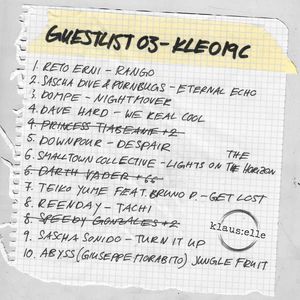 GUESTLIST 03 - KLE019C
1. RETO ERNI - RANGO
2. SASCHA DIVE & PORNBUGS - ETERNAL ECHO
3. DOMPE - NIGHTMOVER
4. DAVE HARD - WE REAL COOL
4. PRINCESS TIABEANIE +2
5. DOWNPOUR - DESPAIR
6. SMALLTOWN COLLECTIVE - LIGHTS ON THE HORIZON
6. DARTH VADER + 66
7. TEIKO YUME FEAT. BRUNO P. - GET LOST
8. REENDAY - TACHI
8. SPEEDY GONZALES +2
9. SASCHA SONIDO - TURN IT UP
10. ABYSS (GIUSEPPE MORABITO) JUNGLE FRUIT
klaus:elle